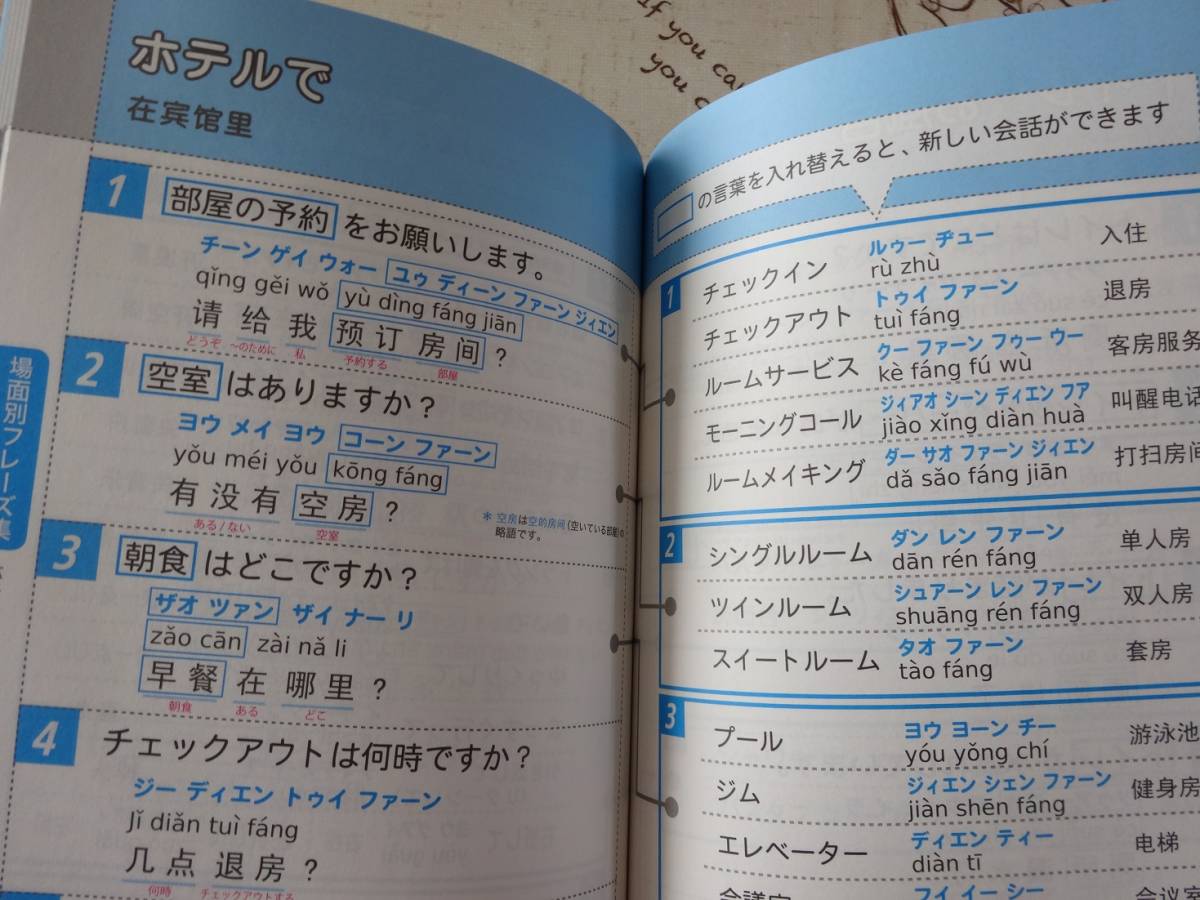 If you can
you c
ホテルで
在宾馆里
1 部屋の予約をお願いします。
チーン ゲイ ウォー ユゥ ディーン ファーン ジィエン
qǐng gěi wǒ yù dìng fáng jiān
请 给 我 预 订 房 间 ?
どうぞ 〜のために 私 予約する 部屋
2 空室はありますか?
ヨウ メイ ヨウ コーン ファーン
yǒu méi yǒu kōng fáng
有 没 有 空 房 ?
ある/ない 空室
＊ 空房は空的房间(空いている部屋)の
略語です。
3 朝食はどこですか?
ザオ ツァン ザイ ナー リ
zǎo cān zài nǎ li
早 餐 在 哪 里 ?
朝食 ある どこ
4 チェックアウトは何時ですか?
ジー ディエン トゥイ ファーン
Jǐ diǎn tuì fáng
几 点 退 房 ?
何時 チェックアウトする
場面別フレーズ集
の言葉を入れ替えると、新しい会話ができます
1
チェックイン ルゥー ヂュー 入住
rù zhù
チェックアウト トゥイ ファーン 退房
tuì fáng
ルームサービス クー ファーン フゥー ウー 客房服务
kè fáng fú wù
モーニングコール ジィアオ シーン ディエン フア 叫醒电话
jiào xǐng diàn huà
ルームメイキング ダー サオ ファーン ジィエン 打扫房间
dǎ sǎo fáng jiān
2
シングルルーム ダン レン ファーン 单人房
dān rén fáng
ツインルーム シュアーン レン ファーン 双人房
shuāng rén fáng
スイートルーム タオ ファーン 套房
tào fáng
3
プール ヨウ ヨーン チー 游泳池
yóu yǒng chí
ジム ジィエン シェン ファーン 健身房
jiàn shēn fáng
エレベーター ディエン ティー 电梯
diàn tī
会議室 フイ イー シー 会议室